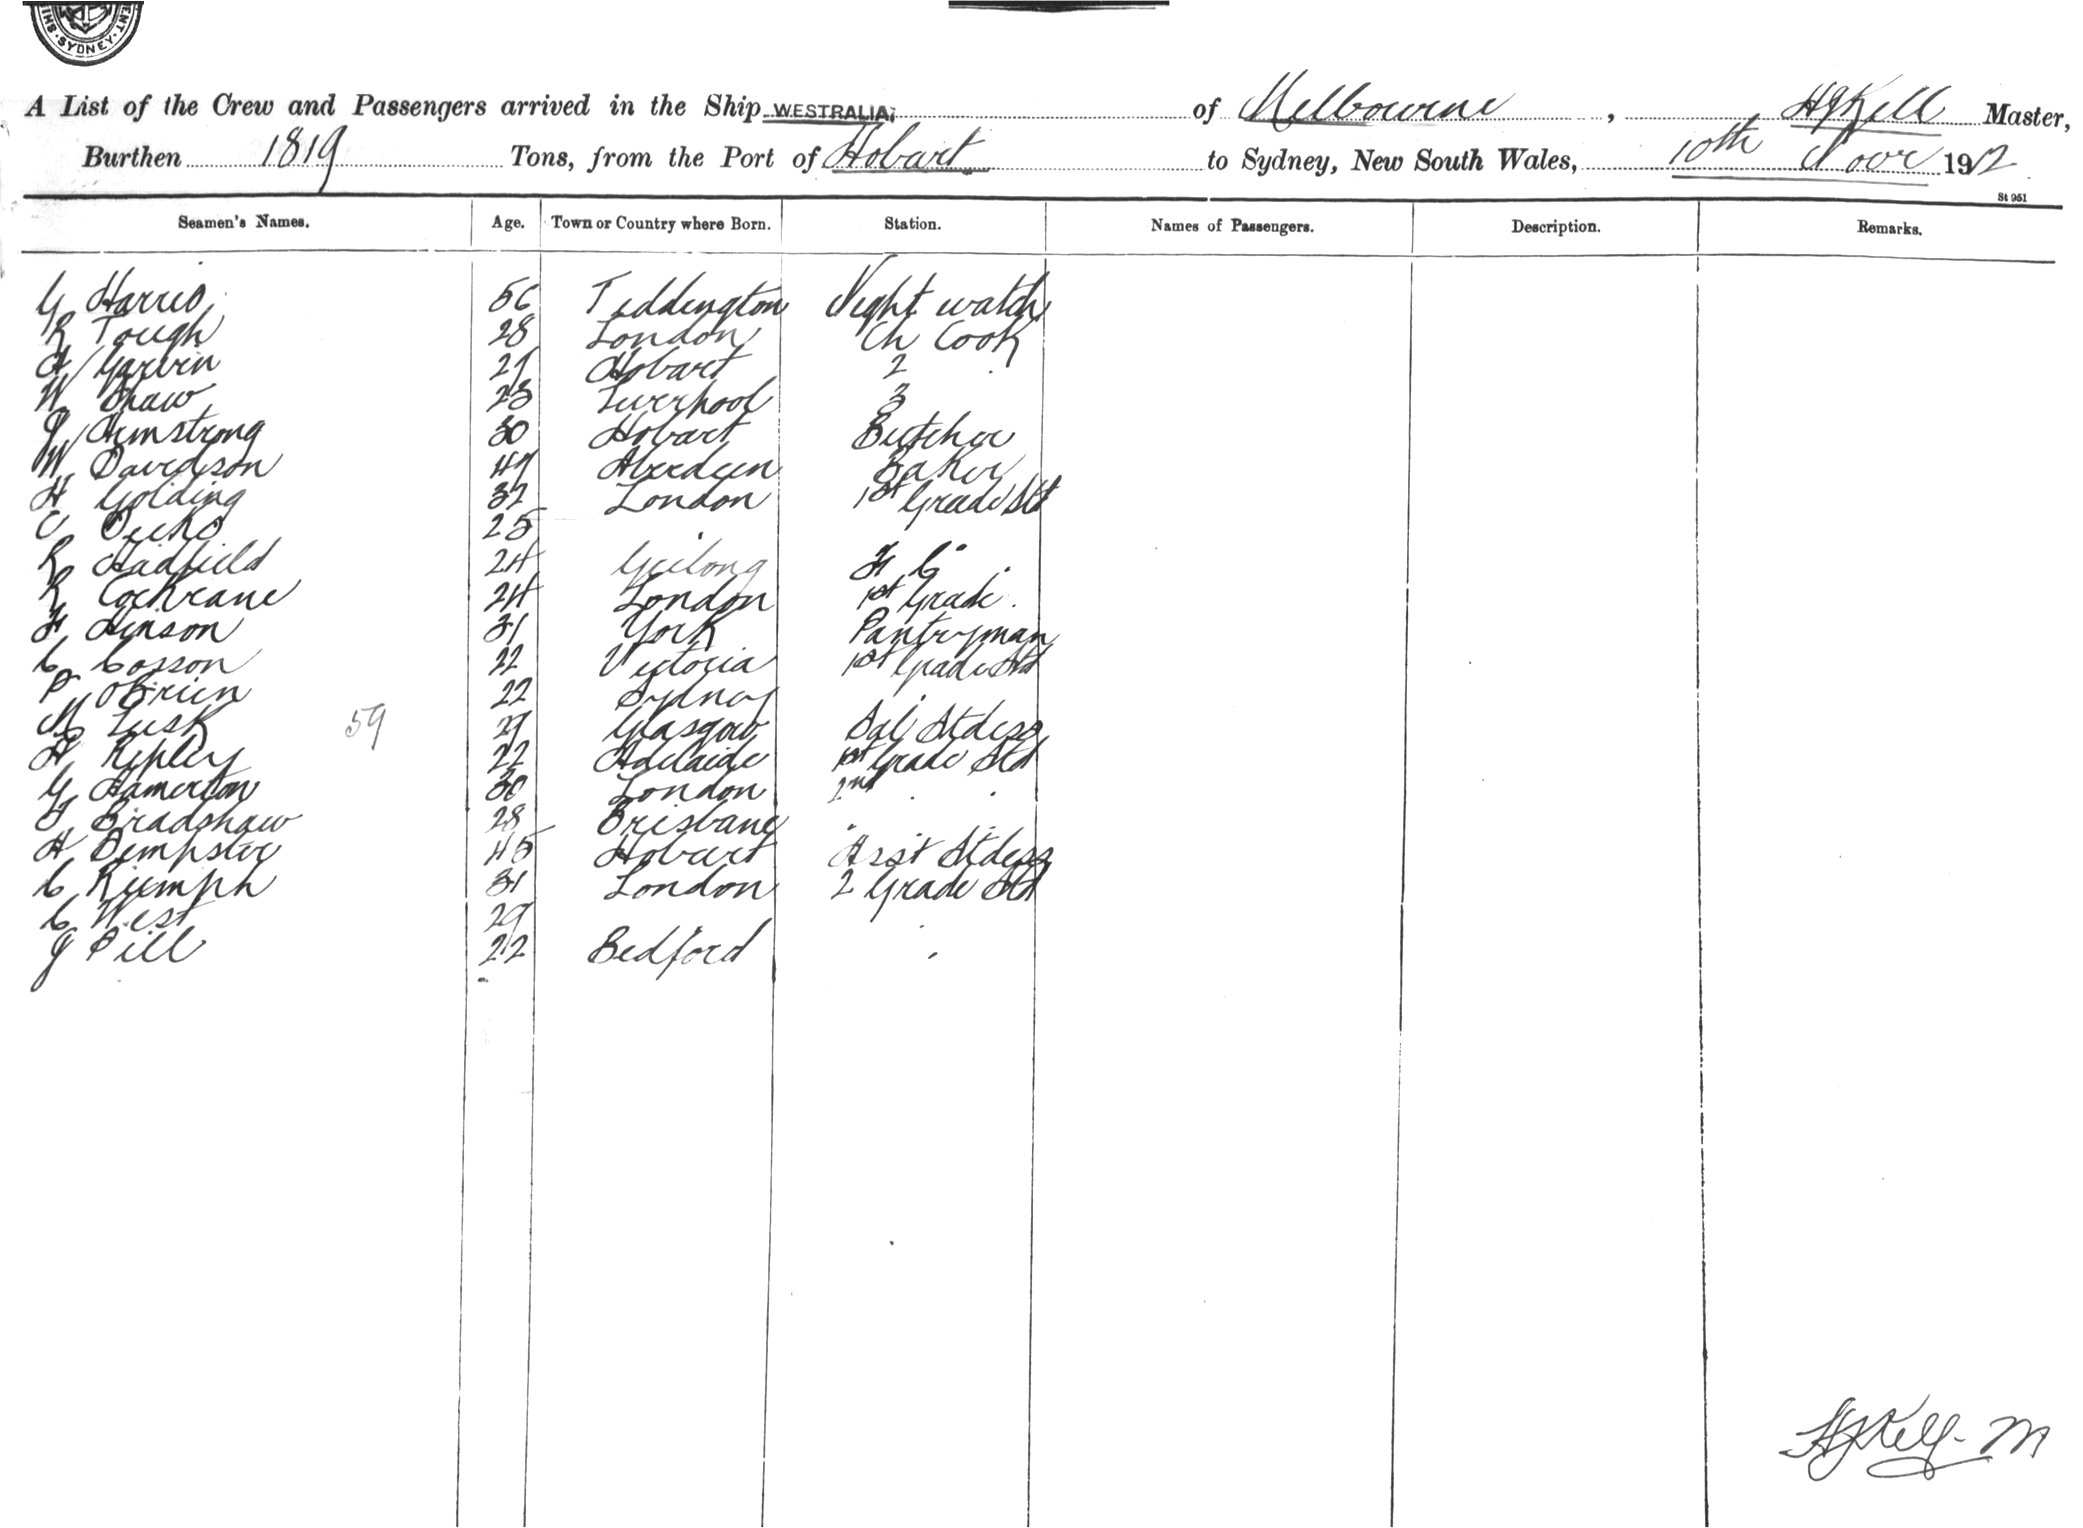 SYDNEY
A List of the Crew and Passengers arrived in the Ship WESTRALIA, of Melbourne, H J Kell Master,
Burthen 1819 Tons, from the Port of Hobart to Sydney, New South Wales, 10th Novr 1912
St 951
Seamen's Names. Age. Town or Country where Born. Station. Names of Passengers. Description. Remarks.
G Harris 56 Teddington Night watch
R Tough 28 London Ch Cook
A Garvin 27 Hobart 2
W Shaw 23 Liverpool 3
J Armstrong 30 Hobart Butcher
W Davidson 47 Aberdeen Baker
H Golding 37 London 1st Grade Std
25
R Hadfield 24 Geelong
R Cochrane 24 London 1st Grade
F Hinson 31 York Pantryman
C Cosson 22 Victoria 1st Grade Std
P OBrien 22 Sydney
M Lusk 59 29 Glasgow Sal Stdess
H Kepley 22 Adelaide 1st Grade Std
G Hamerton 30 London 2nd
Bradshaw 28 Brisbane
A Dempster 45 Hobart Asst Stdess
C Rumph 31 London 2 Grade Std
C West 29
J Dill 22 Bedford
H J Kell M